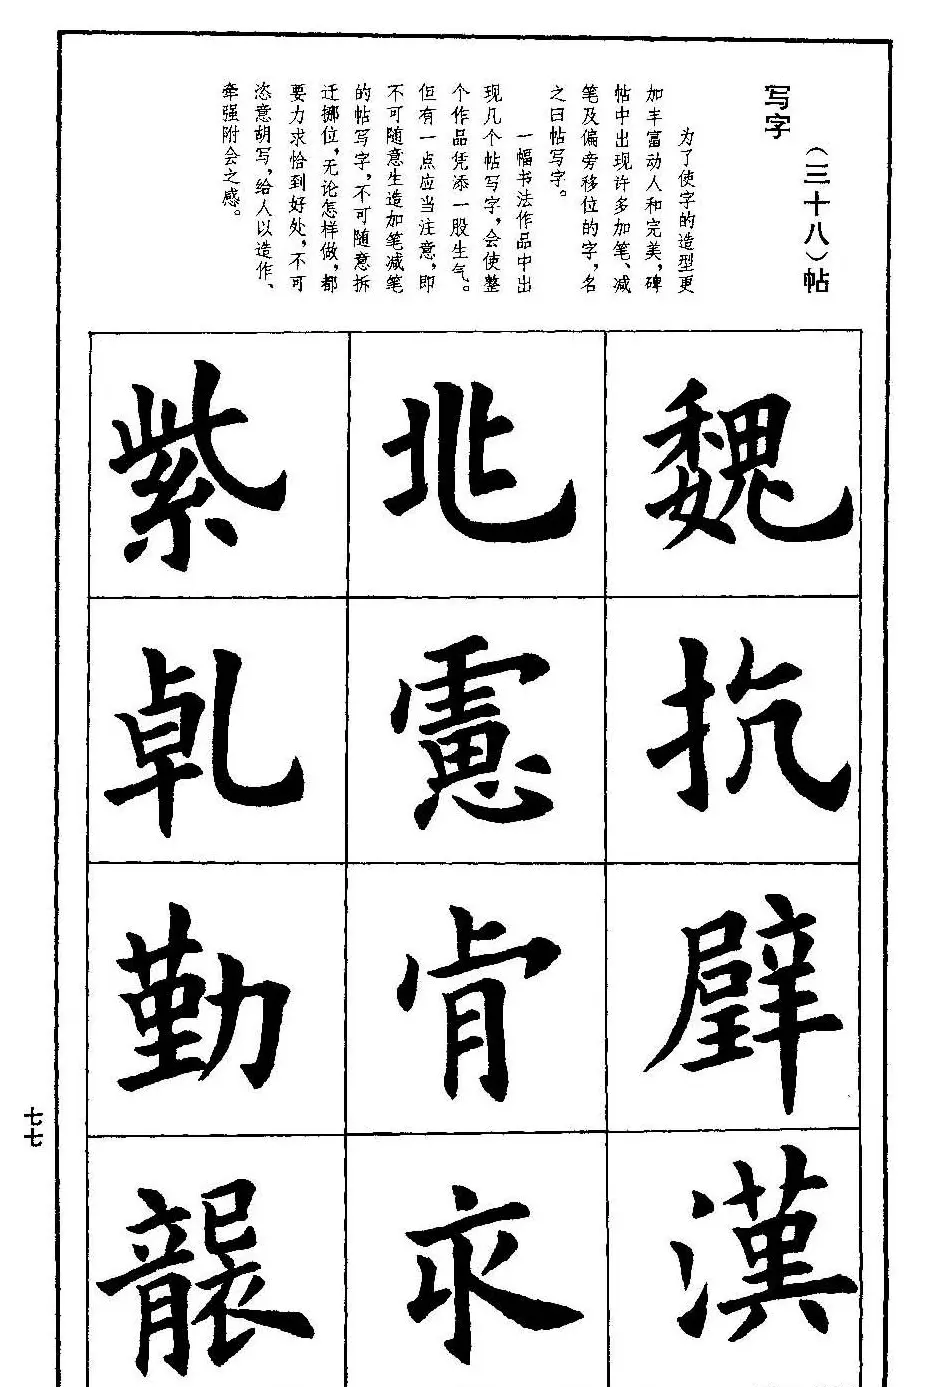 （三十八）帖
写字
为了使字的造型更
加丰富动人和完美，碑
帖中出现许多加笔、减
笔及偏旁移位的字，名
之曰帖写字。
一幅书法作品中出
现几个帖写字，会使整
个作品凭添一股生气。
但有一点应当注意，即
不可随意生造加笔减笔
的帖写字，不可随意拆
迁挪位，无论怎样做，都
要力求恰到好处，不可
恣意胡写，给人以造作、
牵强附会之感。
魏
抗
壁
漢
北
慮
肯
求
紫
乹
勤
襲
七七